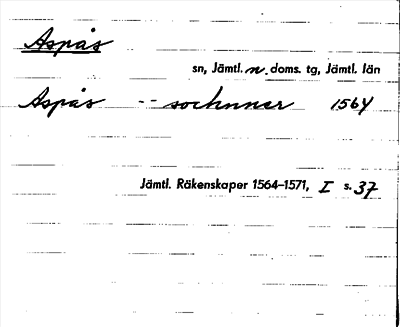 Aspås
sn, Jämtl. n. doms. tg, Jämtl. län
Aspås -- sochnner 1564
Jämtl. Räkenskaper 1564–1571, I s. 37